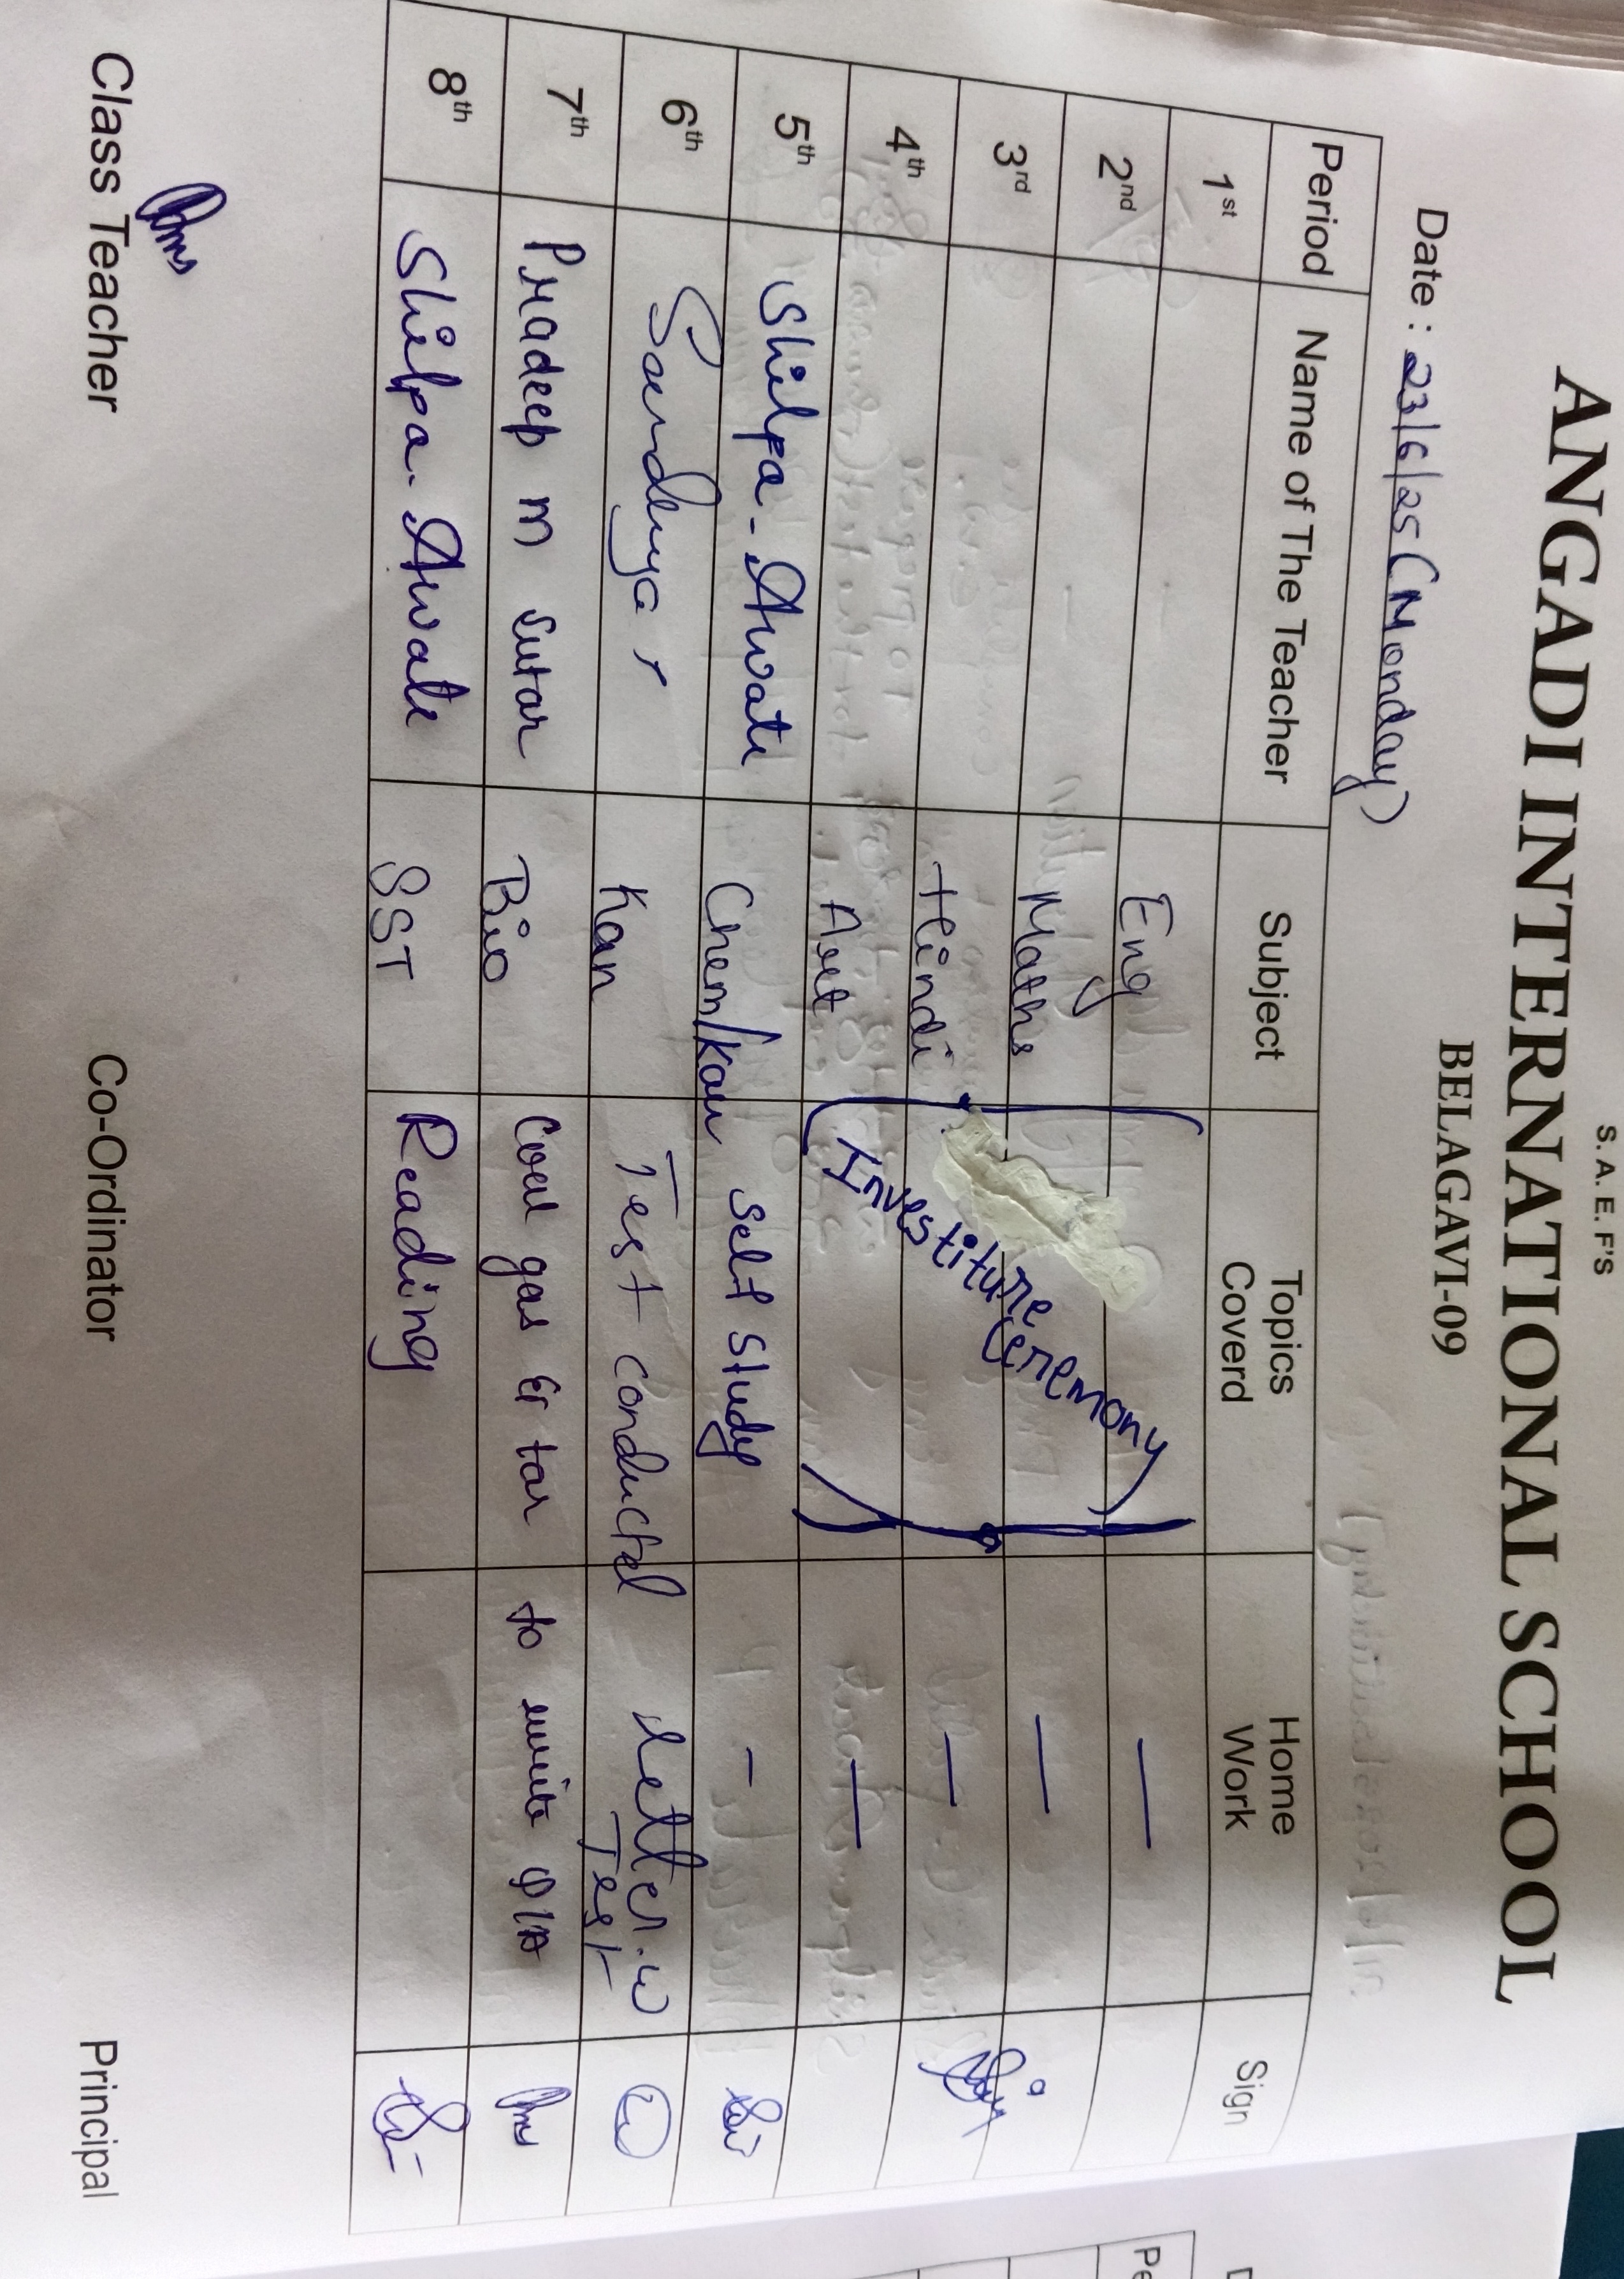 S. A. E. F'S
ANGADI INTERNATIONAL SCHOOL
BELAGAVI-09
Date : 23/6/25 (Monday)
Period Name of The Teacher Subject Topics Coverd Home Work Sign
1st Eng —
2nd Maths —
3rd Hindi —
4th Art —
Investiture Ceremony
5th Shilpa. Awate Chem/Kan self study -
6th Soundarya Kan Test conducted letter.w Test
7th Pradeep m Sutar Bio Coal gas & tar to write Q/A
8th Shilpa. Awale SST Reading
Class Teacher Co-Ordinator Principal